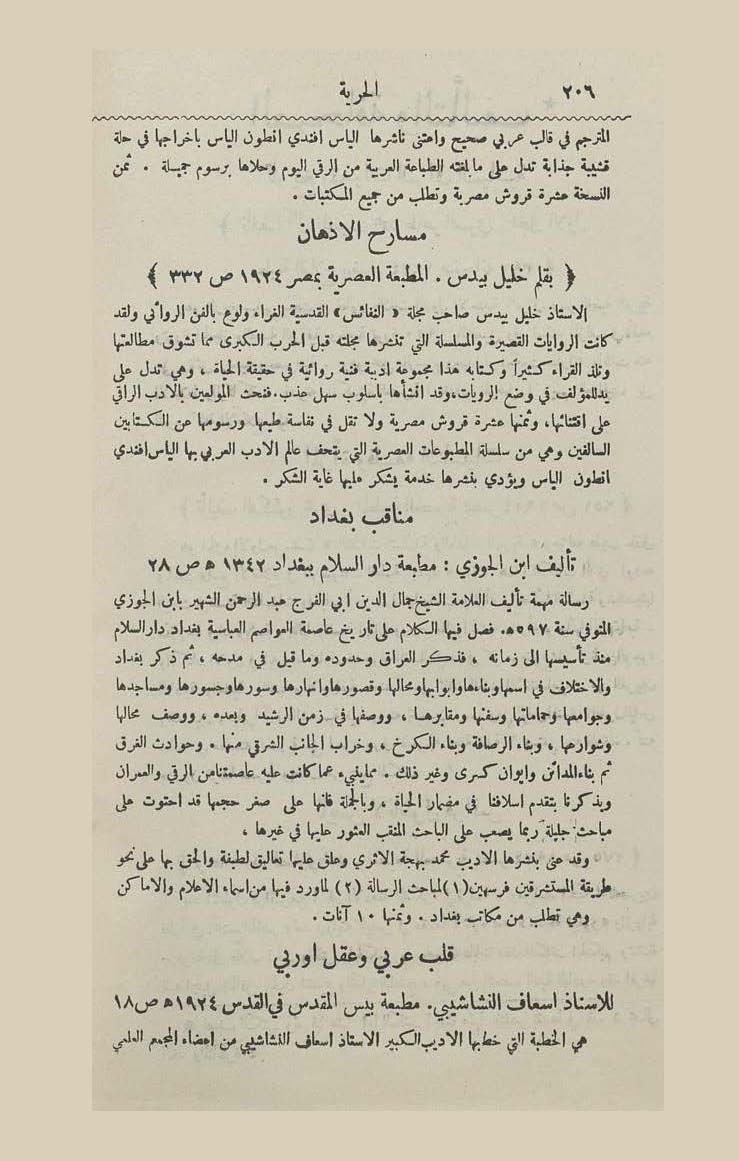 ٢٠٦ الحرية
المترجم في قالب عربي صحيح واعتنى ناشرها الياس افندي انطون الياس باخراجها في حلة
قشيبة جذابة تدل على مابلغته الطباعة العربية من الرقي اليوم وحلاها برسوم جميلة . ثمن
النسخة عشرة قروش مصرية وتطلب من جميع المكتبات .
مسارح الاذهان
﴿ بقلم خليل بيدس . المطبعة العصرية بمصر ١٩٢٤ ص ٣٣٢ ﴾
الاستاذ خليل بيدس صاحب مجلة « النفائس» القدسية الغراء ولوع بالفن الروائي ولقد
كانت الروايات القصيرة والمسلسلة التي تنشرها مجلته قبل الحرب الكبرى مما تشوق مطالعتها
وتلذ القراء كثيراً وكتابه هذا مجموعة ادبية فنية روائية في حقيقة الحياة ، وهي تدل على
يدللمؤلف في وضع الرويات،وقد انشأها باسلوب سهل عذب.فنحث المولعين بالادب الراقي
على اقتنائها، وثمنها عشرة قروش مصرية ولا تقل في نفاسة طبعها ورسومها عن الكتابين
السالفين وهي من سلسلة المطبوعات العصرية التي يتحف عالم الادب العربي بها الياس افندي
انطون الياس ويؤدي بنشرها خدمة يشكر عليها غاية الشكر .
مناقب بغداد
تأليف ابن الجوزي : مطبعة دار السلام ببغداد ١٣٤٢ ه ص ٢٨
رسالة مهمة تأليف العلامة الشيخ جمال الدين ابي الفرج عبد الرحمن الشهير بابن الجوزي
المتوفي سنة ٥٩٧ه. فصل فيها الكلام على تاريخ عاصمة العواصم العباسية بغداد دارالسلام
منذ تأسيسها الى زمانه ، فذكر العراق وحدوده وما قيل في مدحه ، ثم ذكر بغداد
والاختلاف في اسمها وبناءها وابوابها ومحالها وقصورها وانهارها وسورها وجسورها ومساجدها
وجوامعها وحماماتها وسفنها ومقابرها ، ووصفها في زمن الرشيد وبعده ، ووصف محالها
وشوارعها ، وبناء الرصافة وبناء الكرخ ، وخراب الجانب الشرقي منها . وحوادث الغرق
ثم بناء المدائن وايوان كسرى وغير ذلك . مماينبيء عما كانت عليه عاصمتنامن الرقي والعمران
ويذكرنا بتقدم اسلافنا في مضمار الحياة ، وبالجملة فانها على صغر حجمها قد احتوت على
مباحث جليلة ربما يصعب على الباحث المنقب العثور عليها في غيرها ،
وقد عني بنشرها الاديب محمد بهجة الاثري وعلق عليها تعاليق لطيفة والحق بها على نحو
طريقة المستشرقين فرسهين(١)لمباحث الرسالة (٢) لماورد فيها من اسماء الاعلام والاماكن
وهي تطلب من مكاتب بغداد . وثمنها ١٠ آنات .
قلب عربي وعقل اوربي
للاستاذ اسعاف النشاشيبي. مطبعة بيس المقدس في القدس ١٩٢٤ه ص١٨
هي الخطبة التي خطبها الاديب الكبير الاستاذ اسعاف النشاشيبي من اعضاء المجمع العلمي